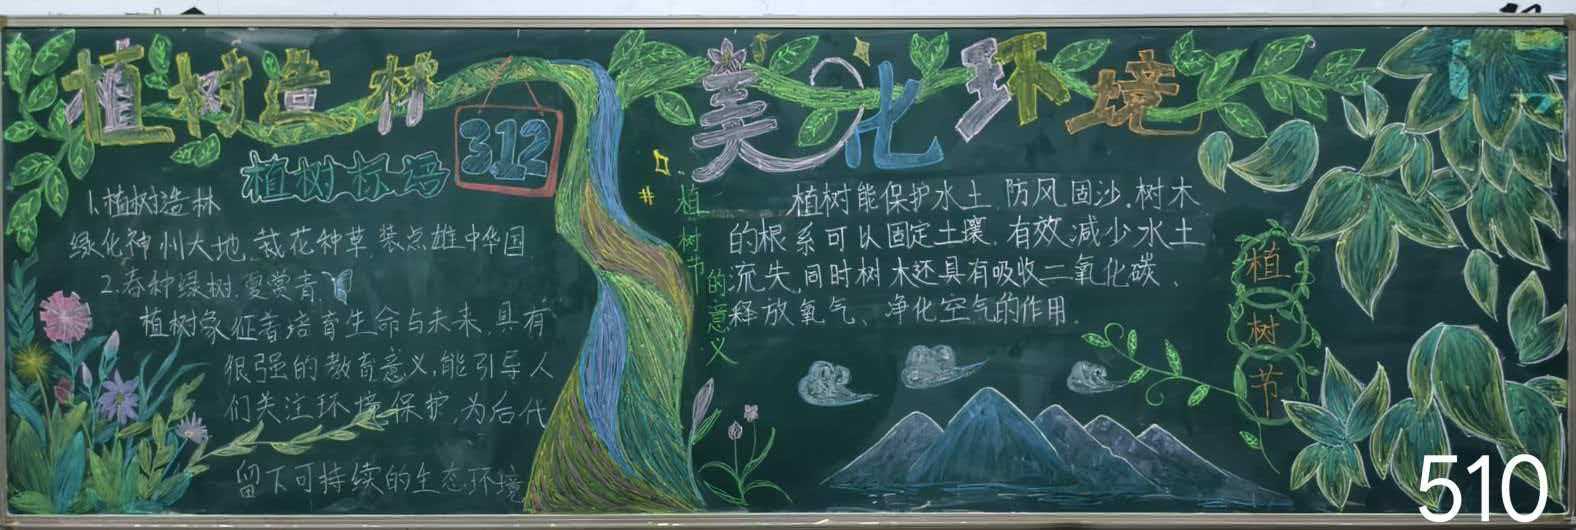 植树造林
美化环境
植树标语
312
1.植树造林
绿化神州大地.栽花种草.装点雄中华国
2.春种绿树.夏赏青
植树象征着培育生命与未来.具有
很强的教育意义,能引导人
们关注环境保护,为后代
留下可持续的生态环境
植树节的意义
植树能保护水土.防风固沙.树木
的根系可以固定土壤.有效减少水土
流失.同时树木还具有吸收二氧化碳、
释放氧气、净化空气的作用.
植树节
510